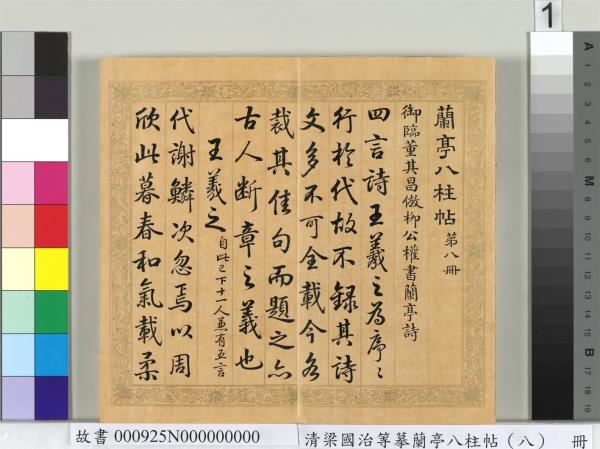 蘭亭八柱帖 第八冊
御臨董其昌倣柳公權書蘭亭詩
四言詩王羲之為序〻
行於代故不錄其詩
文多不可全載今各
裁其佳句而題之亦
古人斷章之義也
王羲之 自此已下十一人兼有五言
代謝鱗次忽焉以周
欣此暮春和氣載柔
1
A
1
2
3
4
5
6
M
8
9
10
11
12
13
14
15
B
17
18
19
故書 000925N000000000
清梁國治等摹蘭亭八柱帖（八） 冊